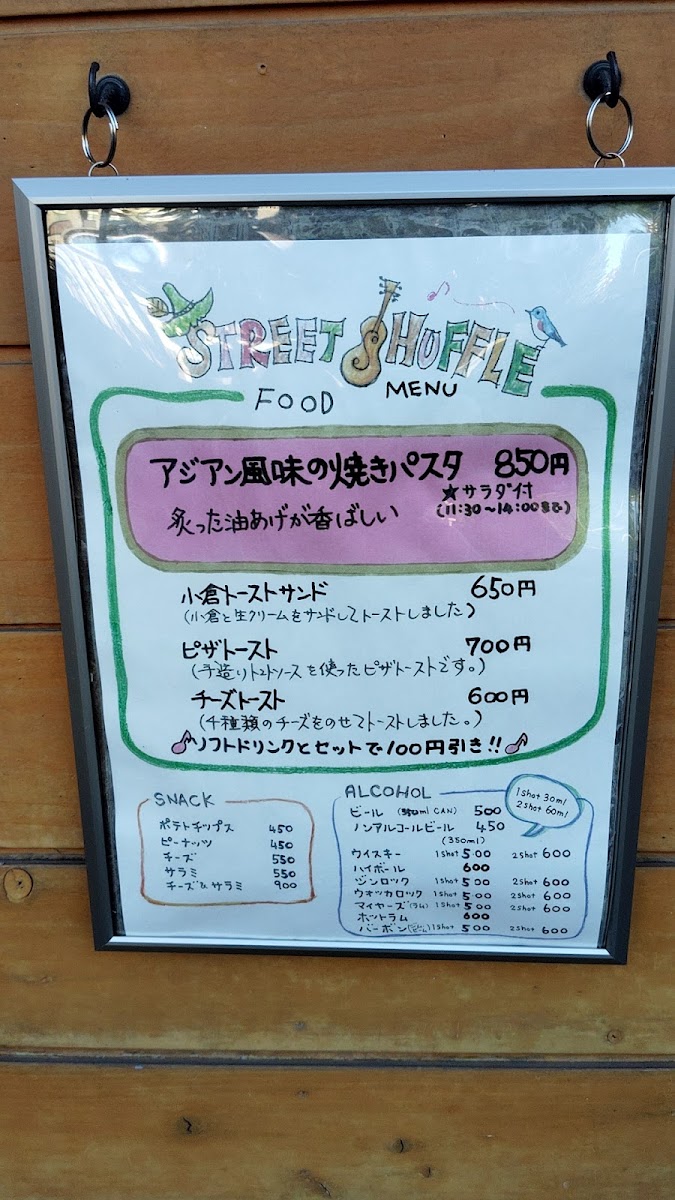 STREET SHUFFLE
FOOD MENU
アジアン風味の焼きパスタ 850円
★サラダ付
(11:30〜14:00まで)
炙った油あげが香ばしい
小倉トーストサンド 650円
(小倉と生クリームをサンドしてトーストしました)
ピザトースト 700円
(手造りトマトソースを使ったピザトーストです。)
チーズトースト 600円
(4種類のチーズをのせてトーストしました。)
ソフトドリンクとセットで100円引き!!
SNACK
ポテトチップス 450
ピーナッツ 450
チーズ 550
サラミ 550
チーズ&サラミ 900
ALCOHOL
1shot 30ml
2shot 60ml
ビール (350ml CAN) 500
ノンアルコールビール 450
(350ml)
ウイスキー 1shot 500 2shot 600
ハイボール 600
ジンロック 1shot 500 2shot 600
ウォッカロック 1shot 500 2shot 600
マイヤーズ(ラム) 1shot 500 2shot 600
ホットラム 600
バーボン 1shot 500 2shot 600